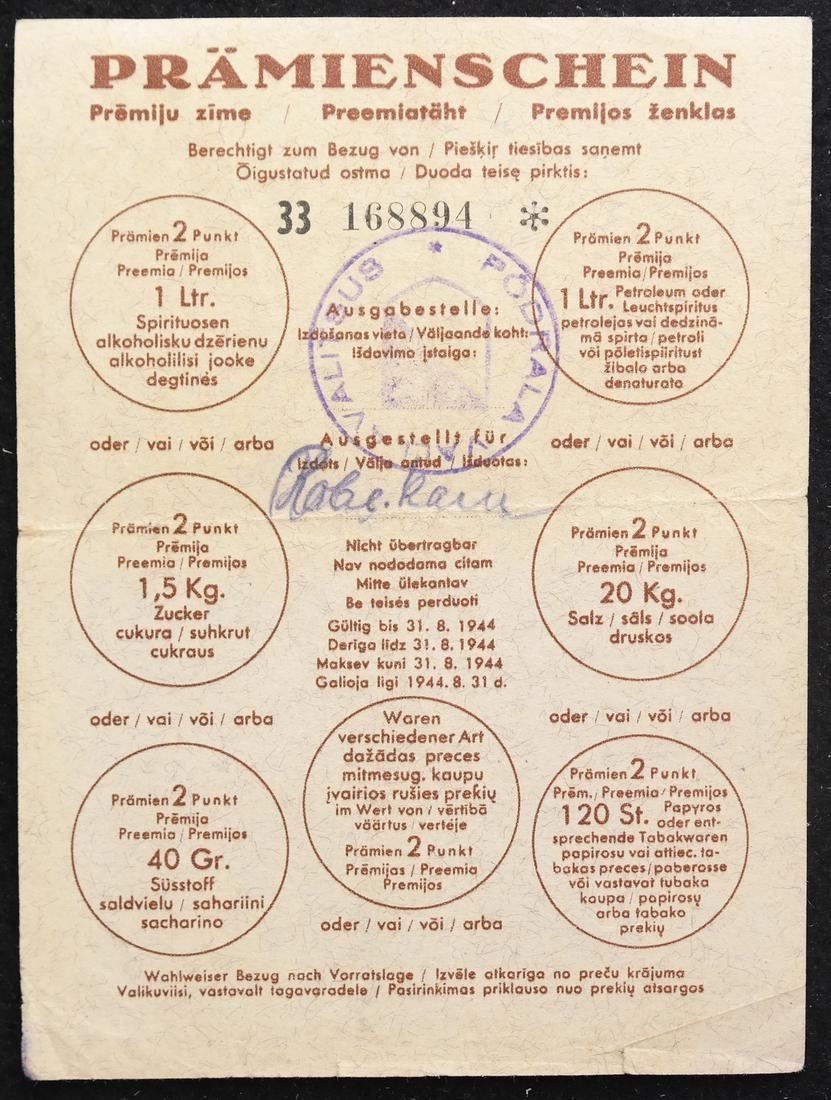 PRÄMIENSCHEIN
Prēmiju zīme / Preemiatäht / Premijos ženklas
Berechtigt zum Bezug von / Piešķir tiesības saņemt
Õigustatud ostma / Duoda teisę pirktis:
33 168894 *
Prämien 2 Punkt
Prēmija
Preemia / Premijos
1 Ltr.
Spirituosen
alkoholisku dzērienu
alkoholilisi jooke
degtinės
Ausgabestelle:
Izdošanas vieta / Väljaande koht:
Išdavimo įstaiga:
* PÕDRALA
VALITSUS
Prämien 2 Punkt
Prēmija
Preemia / Premijos
1 Ltr. Petroleum oder
Leuchtspiritus
petrolejas vai dedzinā-
mā spirta / petroli
või põletispiiritust
žibalo arba
denaturato
oder / vai / või / arba
Ausgestellt für
Izdots / Välja antud / Išduotas:
oder / vai / või / arba
Prämien 2 Punkt
Prēmija
Preemia / Premijos
1,5 Kg.
Zucker
cukura / suhkrut
cukraus
Nicht übertragbar
Nav nododama citam
Mitte ülekantav
Be teisės perduoti
Gültig bis 31. 8. 1944
Derīga līdz 31. 8. 1944
Maksev kuni 31. 8. 1944
Galioja ligi 1944. 8. 31 d.
Prämien 2 Punkt
Prēmija
Preemia / Premijos
20 Kg.
Salz / sāls / soola
druskos
oder / vai / või / arba
oder / vai / või / arba
Prämien 2 Punkt
Prēmija
Preemia / Premijos
40 Gr.
Süsstoff
saldvielu / sahariini
sacharino
Waren
verschiedener Art
dažādas preces
mitmesug. kaupu
įvairios rušies prekių
im Wert von / vērtībā
väärtus / vertėje
Prämien 2 Punkt
Prēmijas / Preemia
Premijos
oder / vai / või / arba
Prämien 2 Punkt
Prēm. / Preemia / Premijos
120 St. Papyros
oder ent-
sprechende Tabakwaren
papirosu vai attiec. ta-
bakas preces / paberosse
või vastavat tubaka
kaupa / papirosų
arba tabako
prekių
Wahlweiser Bezug nach Vorratslage / Izvēle atkarīga no preču krājuma
Valikuviisi, vastavalt tagavaradele / Pasirinkimas priklauso nuo prekių atsargos